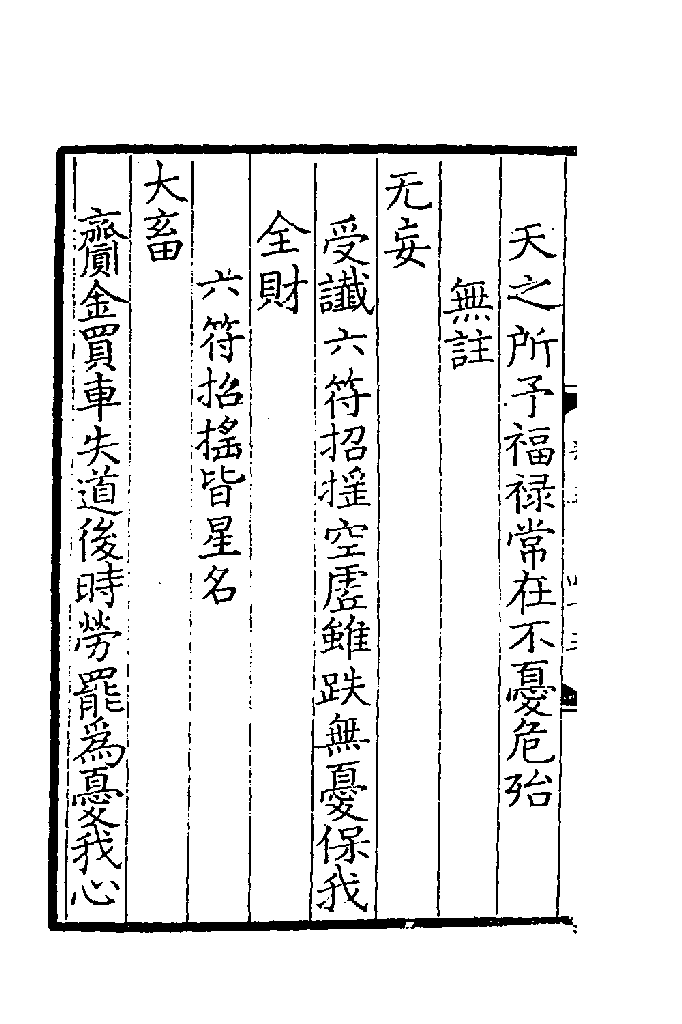 天之所予福祿常在不憂危殆
無註
无妄
受讖六符招揺空虛雖跌無憂保我
全財
六符招搖皆星名
大畜
齎金買車失道後時勞罷爲憂我心